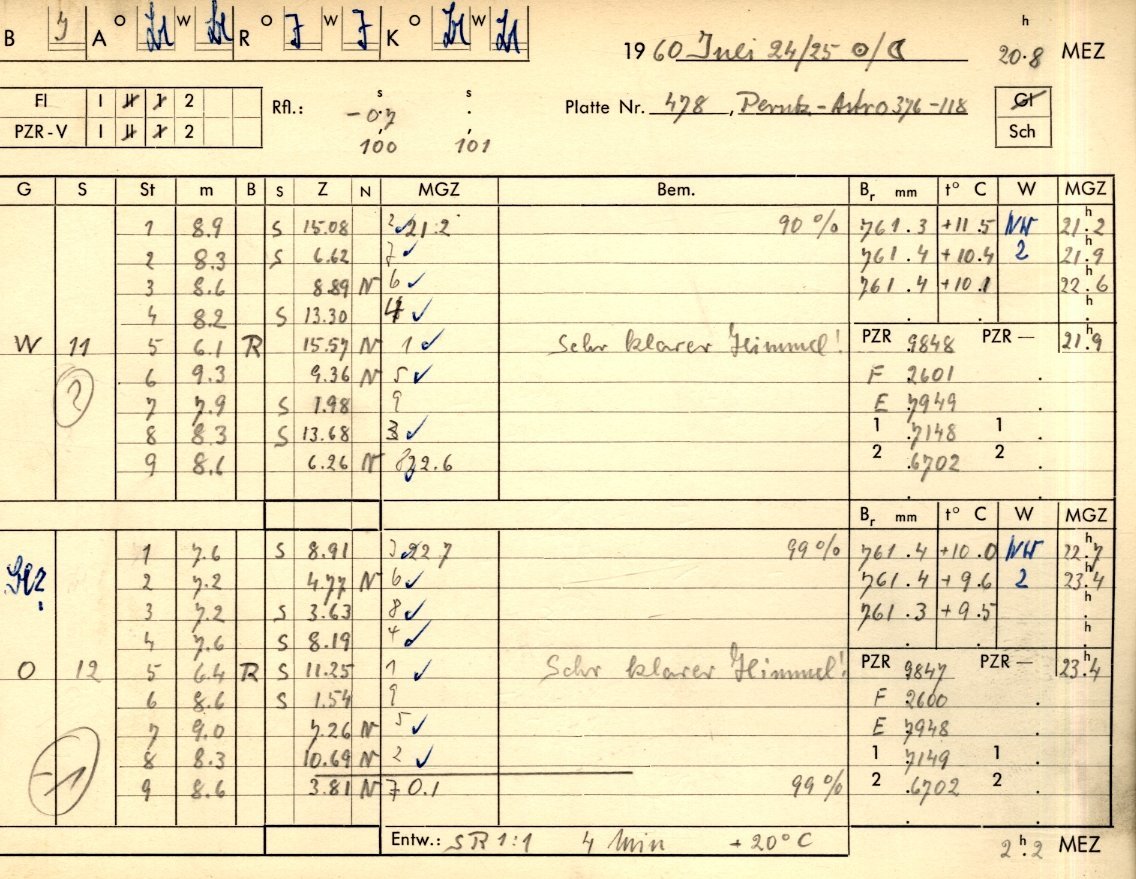 B J A O W R O J W J K O W
1960 Juli 24/25 ⊙/☾ 20.8 h MEZ
Fl 1 11 1 2
PZR-V 1 11 1 2
Rfl.: -0.7 s . s
100 101
Platte Nr. 478, Perutz-Astro 376-118
Gl
Sch
G S St m B S Z N MGZ Bem. Br mm t° C W MGZ
1 8.9 S 15.08 2 ✓ 21.2 90% 761.3 +11.5 NW 21.2 h
2 8.3 S 6.62 7 ✓ 761.4 +10.4 2 21.9 h
3 8.6 8.89 N 6 ✓ 761.4 +10.1 22.6 h
4 8.2 S 13.30 4 ✓ . . . h
W 11 5 6.1 R 15.57 N 1 ✓ Sehr klarer Himmel! PZR .9848 PZR — 21.9 h
(2) 6 9.3 9.36 N 5 ✓ F 2601 .
7 7.9 S 1.98 9 E .7949 .
8 8.3 S 13.68 3 ✓ 1 .7148 1 .
9 8.6 6.26 N 8 22.6 2 .6702 2 .
Br mm t° C W MGZ
1 7.6 S 8.91 3 ✓ 22.7 99% 761.4 +10.0 NW 22.7 h
2 7.2 4.77 N 6 ✓ 761.4 +9.6 2 23.4 h
3 7.2 S 3.63 8 ✓ 761.3 +9.5 . h
4 7.6 S 8.19 4 ✓ . . . h
O 12 5 6.4 R S 11.25 1 ✓ Sehr klarer Himmel! PZR 9847 PZR — 23.4 h
6 8.6 S 1.54 9 F 2600 .
7 9.0 7.26 N 5 ✓ E 7948 .
(-1) 8 8.3 10.69 N 2 ✓ 1 .7149 1 .
9 8.6 3.81 N 7 0.1 99% 2 .6702 2 .
Entw.: SR 1:1 4 Min +20°C 2.2 h MEZ